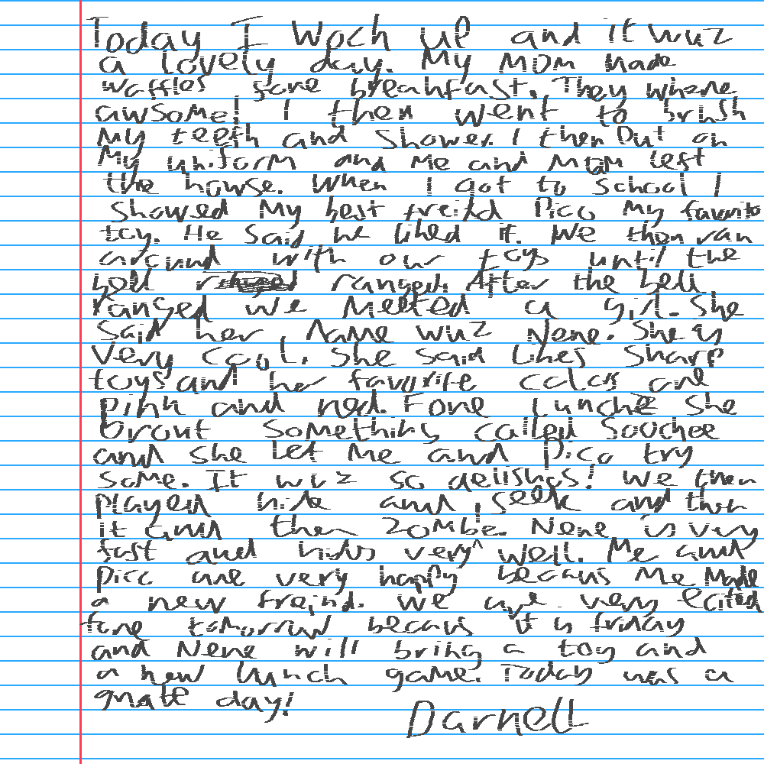 Today I Woch up and it wuz
a lovely day. My MOM made
waffles fore breahfast. They where
awsome! I then went to brush
My teeth and Shower. I then Put on
My uniform and Me and MOM left
the howse. When I got to School I
Showed My best freind Pico My favorite
toy. He Said he liked it. We then ran
around with our toys until the
bell ranged. After the bell
ranged we Meeted a girl. She
Said her Name wuz Nene. She is
very cool. She Said Likes Sharp
toys and her favorite colors are
pink and red. Fore Lunche She
brout Something called Souchee
and She Let Me and Pico try
Some. It wuz so delishus! We then
played hide and seek and then
it and then Zombe. Nene is very
fast and hids very well. Me and
Pico are very happy becaus Me Made
a new freind. We are very ecited
fore tomorrow becaus it is friday
and Nene will bring a toy and
a new lunch game. Today was a
grate day!
Darnell